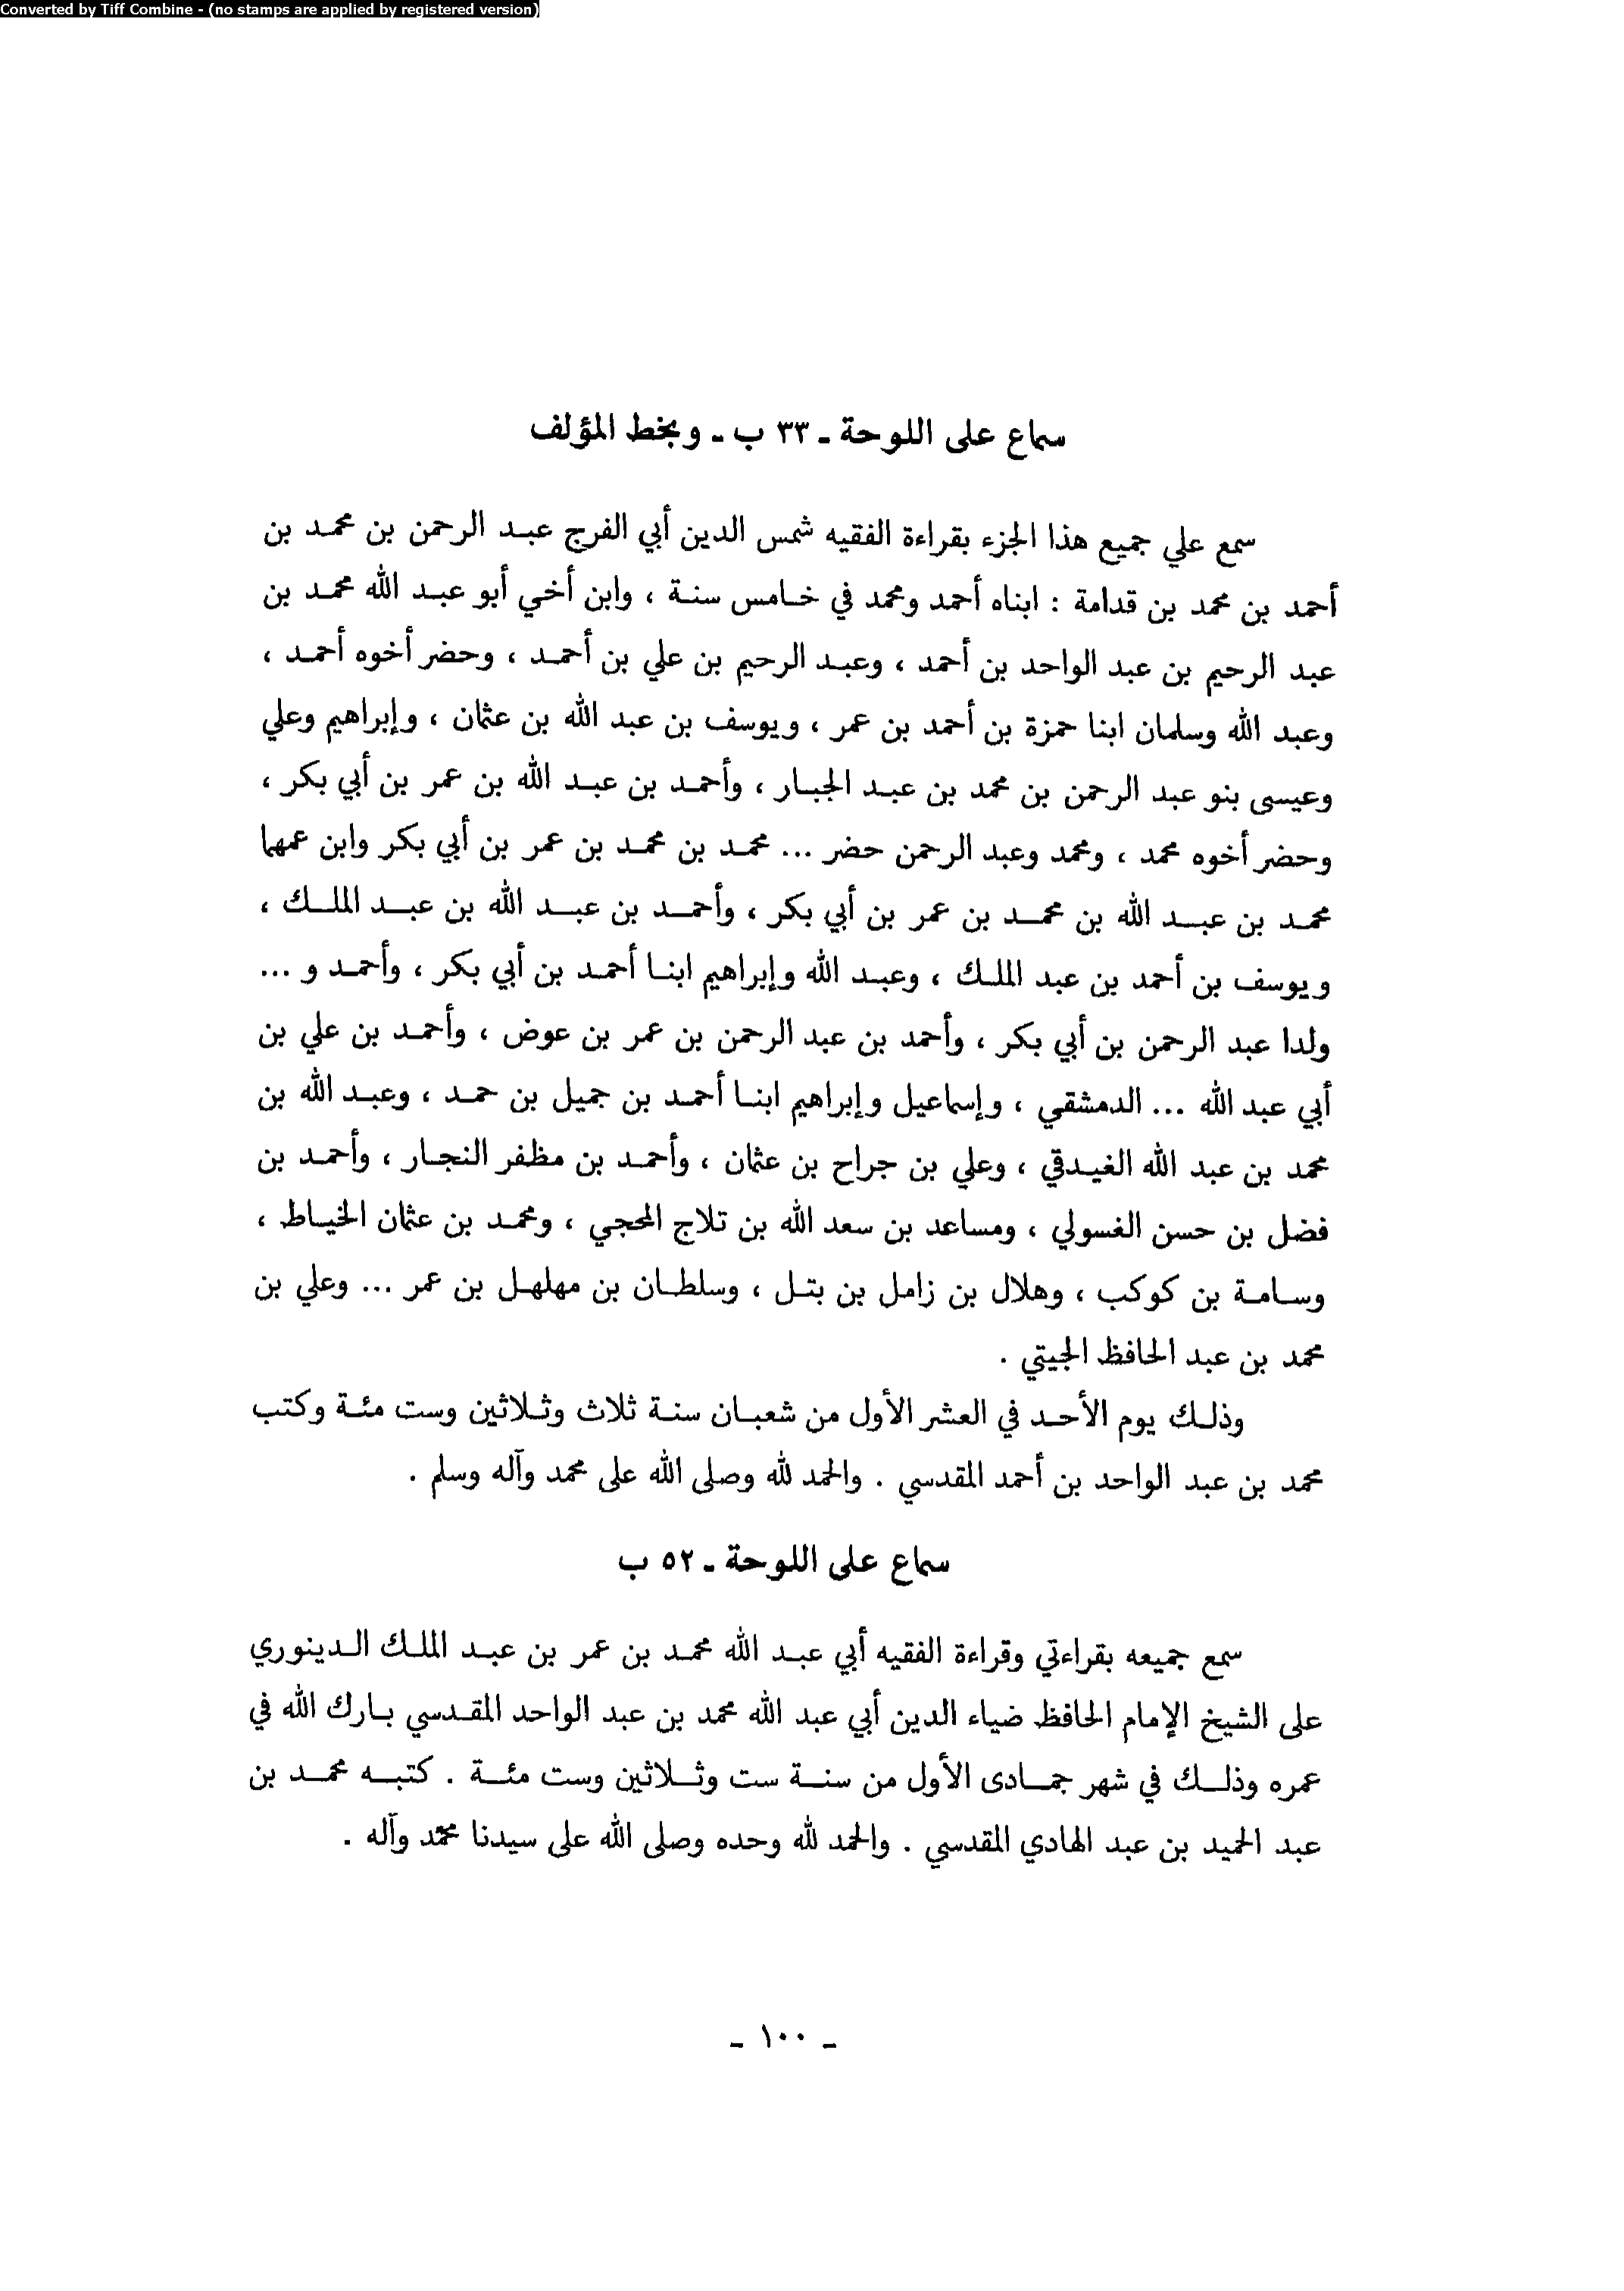 Converted by Tiff Combine - (no stamps are applied by registered version)
سماع على اللوحة ـ ٣٣ ب ـ وبخط المؤلف
سمع علي جميع هذا الجزء بقراءة الفقيه شمس الدين أبي الفرج عبد الرحمن بن محمد بن
أحمد بن محمد بن قدامة : ابناه أحمد ومحمد في خامس سنة ، وابن أخي أبو عبد الله محمد بن
عبد الرحيم بن عبد الواحد بن أحمد ، وعبد الرحيم بن علي بن أحمد ، وحضر أخوه أحمد ،
وعبد الله وسلمان ابنا حمزة بن أحمد بن عمر ، ويوسف بن عبد الله بن عثمان ، وإبراهيم وعلي
وعيسى بنو عبد الرحمن بن محمد بن عبد الجبار ، وأحمد بن عبد الله بن عمر بن أبي بكر ،
وحضر أخوه محمد ، ومحمد وعبد الرحمن حضر ... محمد بن محمد بن عمر بن أبي بكر وابن عمهما
محمد بن عبد الله بن محمد بن عمر بن أبي بكر ، وأحمد بن عبد الله بن عبد الملك ،
ويوسف بن أحمد بن عبد الملك ، وعبد الله وإبراهيم ابنا أحمد بن أبي بكر ، وأحمد و ...
ولدا عبد الرحمن بن أبي بكر ، وأحمد بن عبد الرحمن بن عمر بن عوض ، وأحمد بن علي بن
أبي عبد الله ... الدمشقي ، وإسماعيل وإبراهيم ابنا أحمد بن جميل بن حمد ، وعبد الله بن
محمد بن عبد الله الغيدقي ، وعلي بن جراح بن عثمان ، وأحمد بن مظفر النجار ، وأحمد بن
فضل بن حسن الغسولي ، ومساعد بن سعد الله بن تلاج المحجي ، ومحمد بن عثمان الخياط ،
وسامة بن كوكب ، وهلال بن زامل بن بتل ، وسلطان بن مهلهل بن عمر ... وعلي بن
محمد بن عبد الحافظ الجيتي .
وذلك يوم الأحد في العشر الأول من شعبان سنة ثلاث وثلاثين وست مئة وكتب
محمد بن عبد الواحد بن أحمد المقدسي . والحمد لله وصلى الله على محمد وآله وسلم .
سماع على اللوحة ـ ٥٢ ب
سمع جميعه بقراءتي وقراءة الفقيه أبي عبد الله محمد بن عمر بن عبد الملك الدينوري
على الشيخ الإمام الحافظ ضياء الدين أبي عبد الله محمد بن عبد الواحد المقدسي بارك الله في
عمره وذلك في شهر جمادى الأول من سنة ست وثلاثين وست مئة . كتبه محمد بن
عبد الحميد بن عبد الهادي المقدسي . والحمد لله وحده وصلى الله على سيدنا محمّد وآله .
ـ ١٠٠ ـ